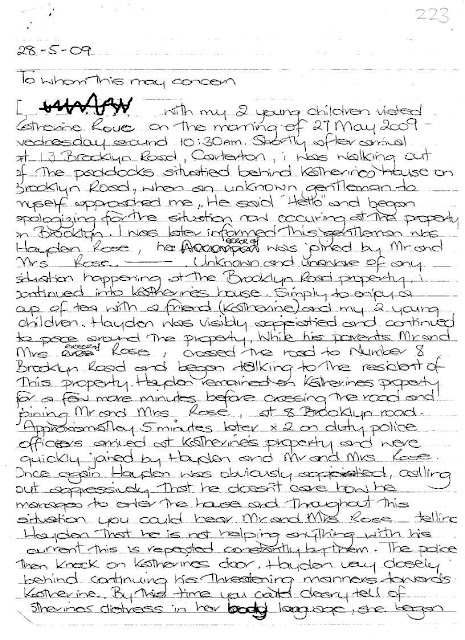 223
28-5-09
To whom this may concern
I, with my 2 young children visited
Katherine Rowe on the morning of 27 May 2009 -
wednesday around 10:30am. Shortly after arrival
at 13 Brooklyn Road, Carterton, i was walking out
of The paddocks situatied behind Katherines house on
Brooklyn Road, when an unknown gentleman to
myself approached me,. He said "Hello" and began
apologising for the situation now occuring at The property
in Brooklyn. I was later informed This gentleman was
Hayden Rose, he was joined by Mr and
Mrs Rose. Unknown and unaware of any
situation happening at The Brooklyn Road property, i
continued into Katherines house. Simply to enjoy a
cup of tea with a friend (Katherine) and my 2 young
children. Hayden was visibly and continued
to pace around The property, While his parents Mr and
Mrs Rose, crossed the road to Number 8
Brooklyn Road and began talking to The resident of
This property. Hayden remained on Katherines property
for a few more minutes before crossing The road and
joining Mr and Mrs Rose, at 8 Brooklyn road.
Approximatley 5 minutes later x 2 on duty police
officers arrived at Katherine's property and were
quickly joined by Hayden and Mr and Mrs Rose.
Once again Hayden was obviously, calling
out aggressively That he doesn't care how he
manages to enter The house and Throughout This
situation you could hear Mr and Mrs Rose telling
Hayden That he is not helping anything with his
current This is repeated constantly by Them. The police
Then knock on Katherines door. Hayden very closely
behind continuing his Threatening manners towards
Katherine. By This time you could clearly tell of
atherines distress in her body language, she began